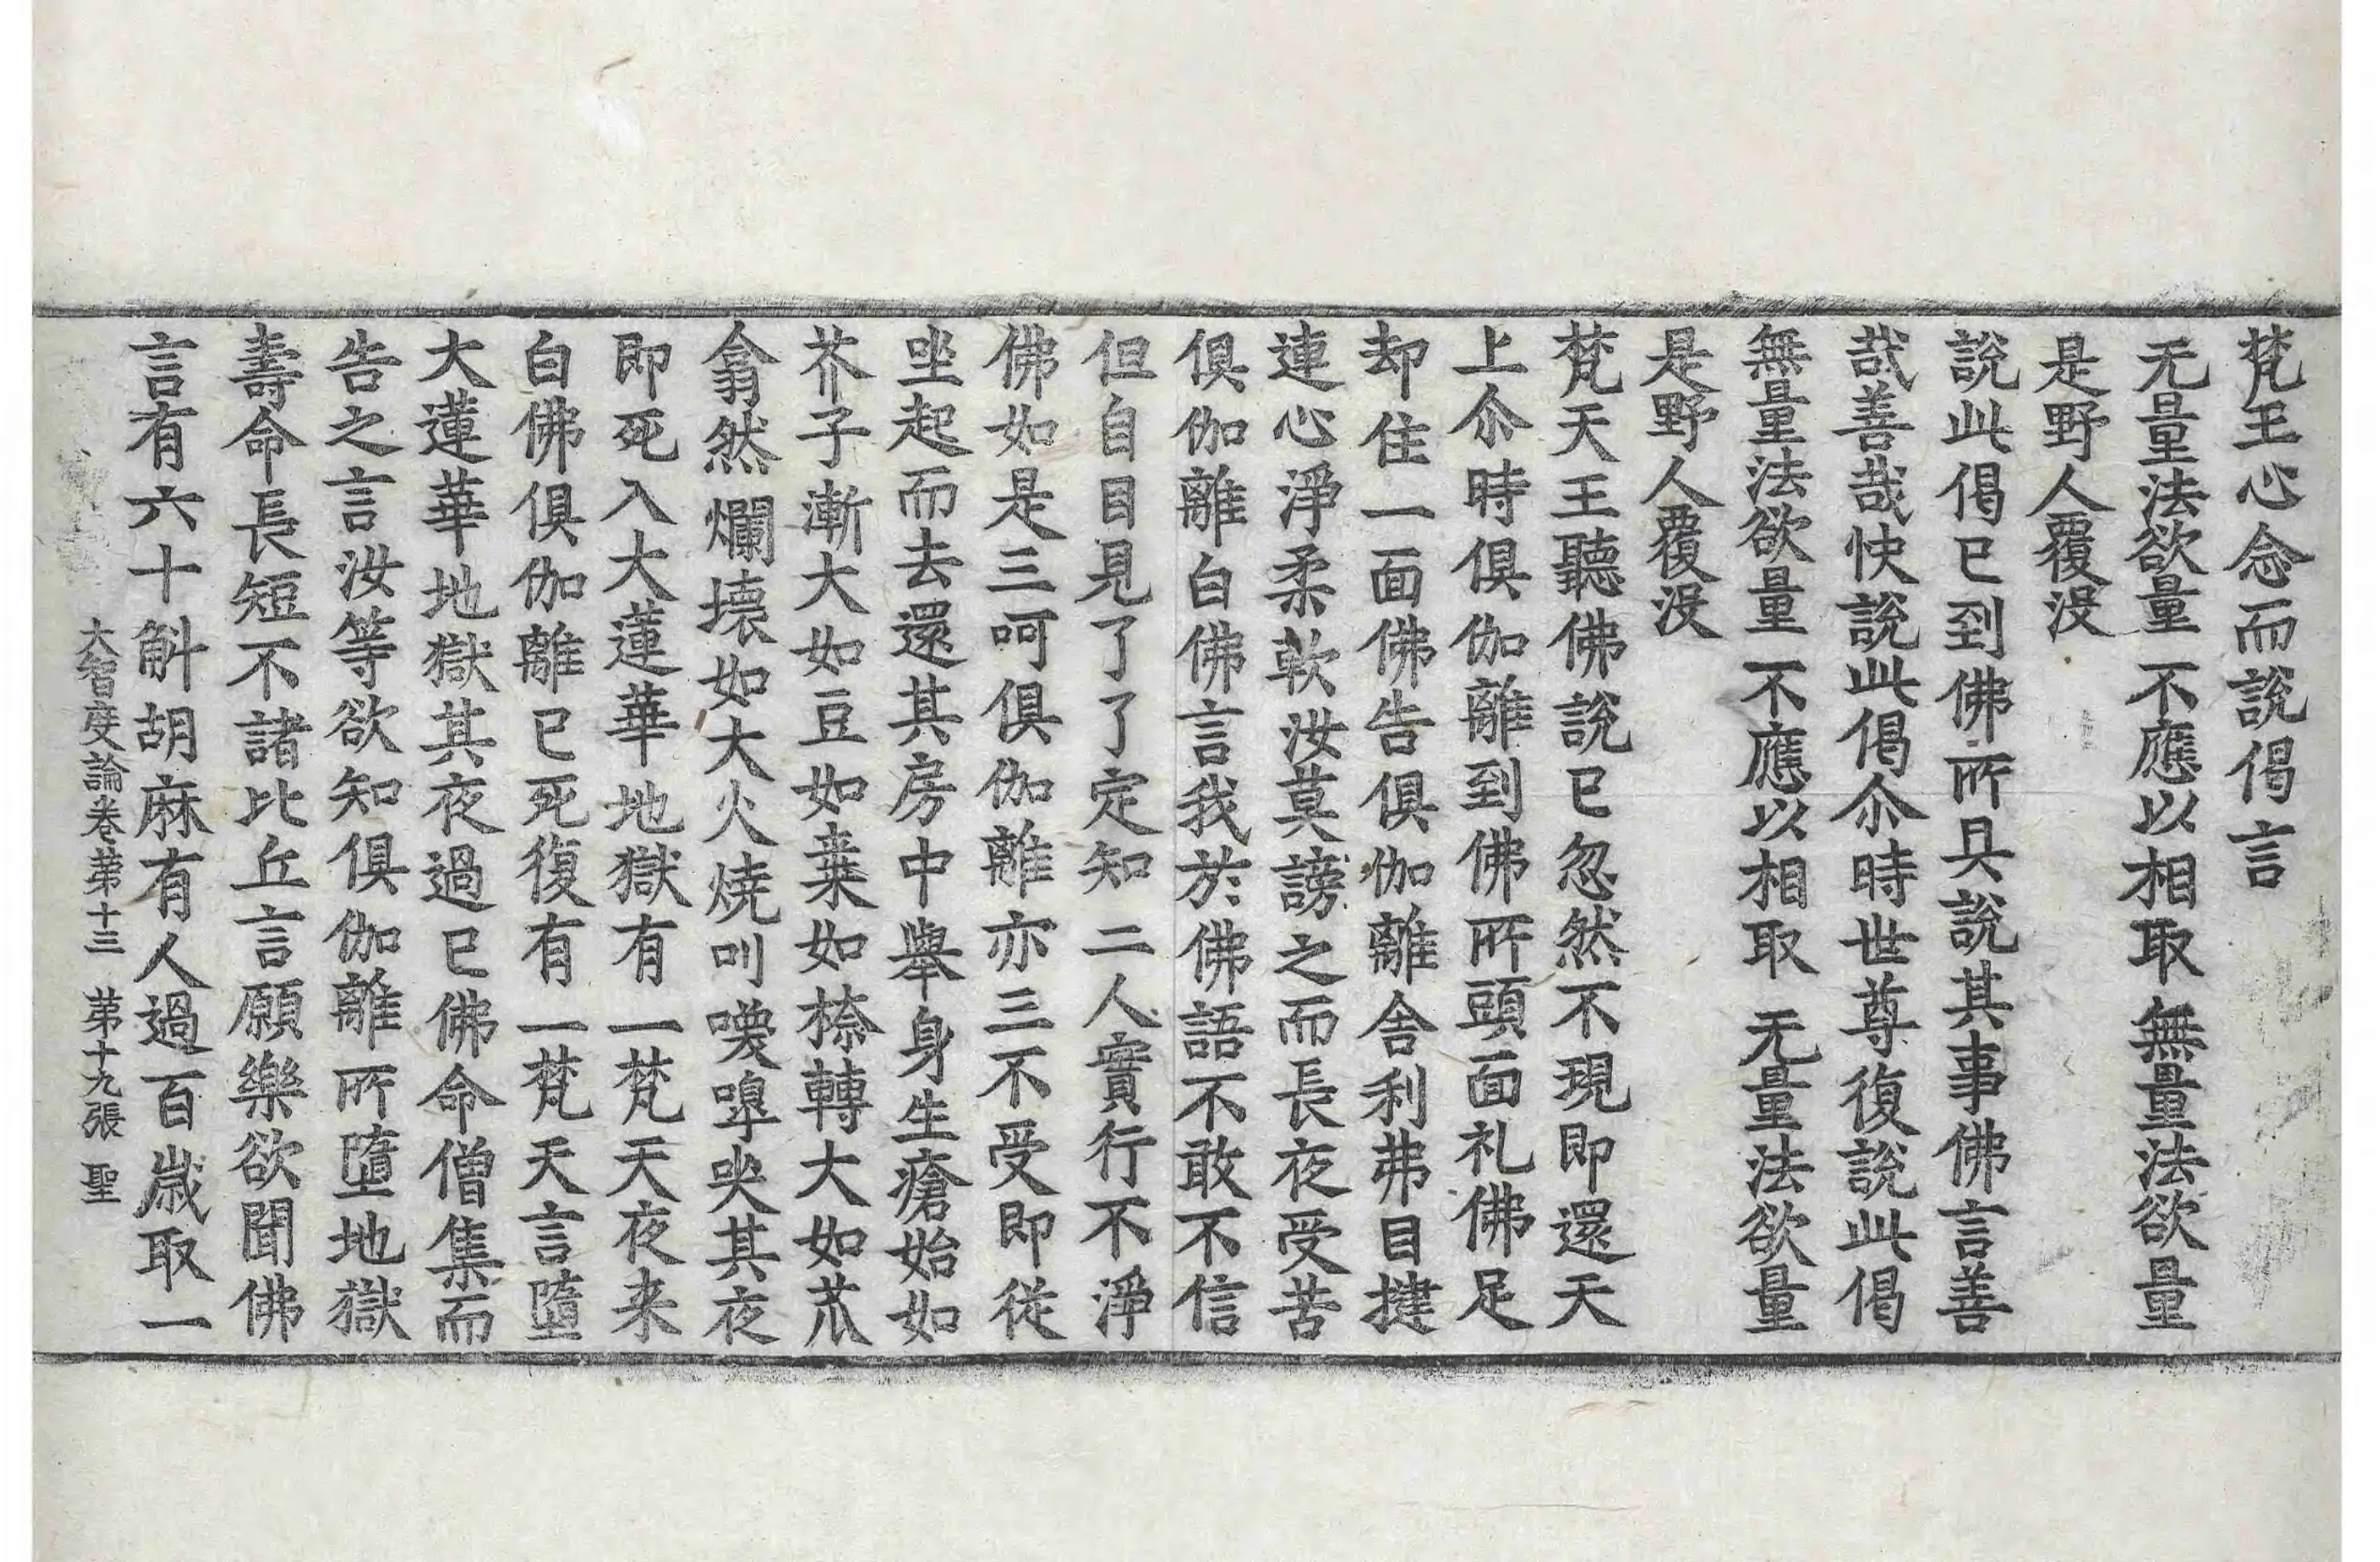 梵王心念而說偈言
无量法欲量 不應以相取 無量法欲量
是野人覆没
說此偈已到佛所具說其事佛言善
哉善哉快說此偈尒時世尊復說此偈
無量法欲量 不應以相取 无量法欲量
是野人覆没
梵天王聽佛說已忽然不現即還天
上尒時俱伽離到佛所頭面礼佛足
却住一面佛告俱伽離舍利弗目揵
連心淨柔軟汝莫謗之而長夜受苦
俱伽離白佛言我於佛語不敢不信
但自目見了了定知二人實行不淨
佛如是三呵俱伽離亦三不受即從
坐起而去還其房中舉身生瘡始如
芥子漸大如豆如棗如㮈轉大如苽
翕然爛壞如大火燒叫嘷啼哭其夜
即死入大蓮華地獄有一梵天夜来
白佛俱伽離已死復有一梵天言墮
大蓮華地獄其夜過已佛命僧集而
告之言汝等欲知俱伽離所墮地獄
壽命長短不諸比丘言願樂欲聞佛
言有六十斛胡麻有人過百歲取一
大智度論卷第十三 第十九張 聖